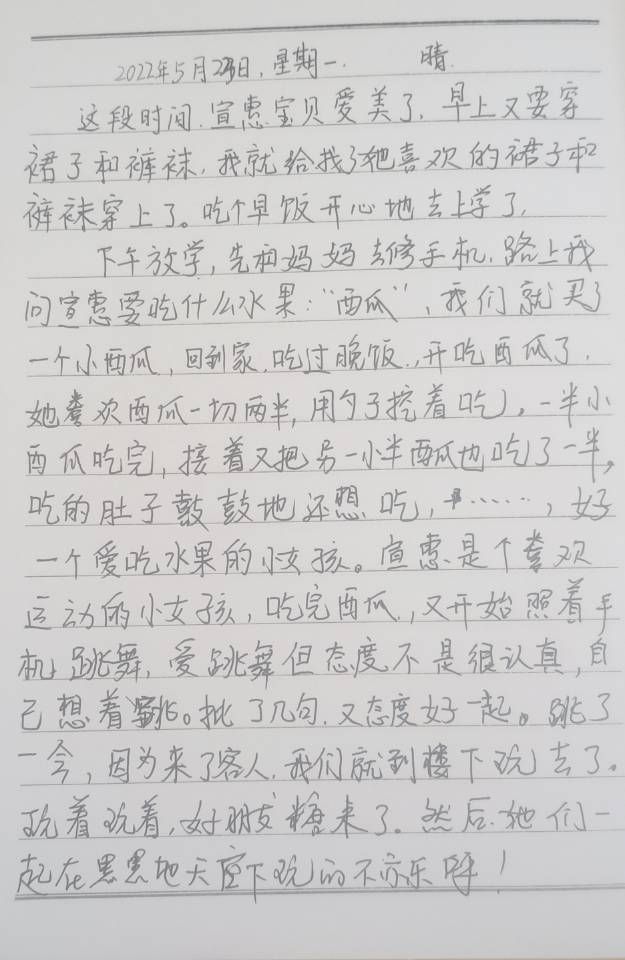 2022年5月23日，星期一． 晴．
这段时间．宣惠宝贝爱美了．早上又要穿
裙子和裤袜．我就给找了她喜欢的裙子和
裤袜穿上了。吃个早饭开心地去上学了．
下午放学，先和妈妈去修手机．路上我
问宣惠要吃什么水果：“西瓜”，我们就买了
一个小西瓜，回到家．吃过晚饭．，开吃西瓜了．
她喜欢西瓜一切两半，用勺子挖着吃，一半小
西瓜吃完，接着又把另一小半西瓜也吃了一半，
吃的肚子鼓鼓地还想吃，……，好
一个爱吃水果的小女孩。宣惠是个喜欢
运动的小女孩，吃完西瓜，又开始照着手
机跳舞．爱跳舞但态度不是很认真，自
己想着跳。批了几句．又态度好一起。跳了
一会，因为来了客人．我们就到楼下玩去了。
玩着玩着，好朋友糖来了。然后．她们一
起在黑黑地天空下玩的不亦乐乎！